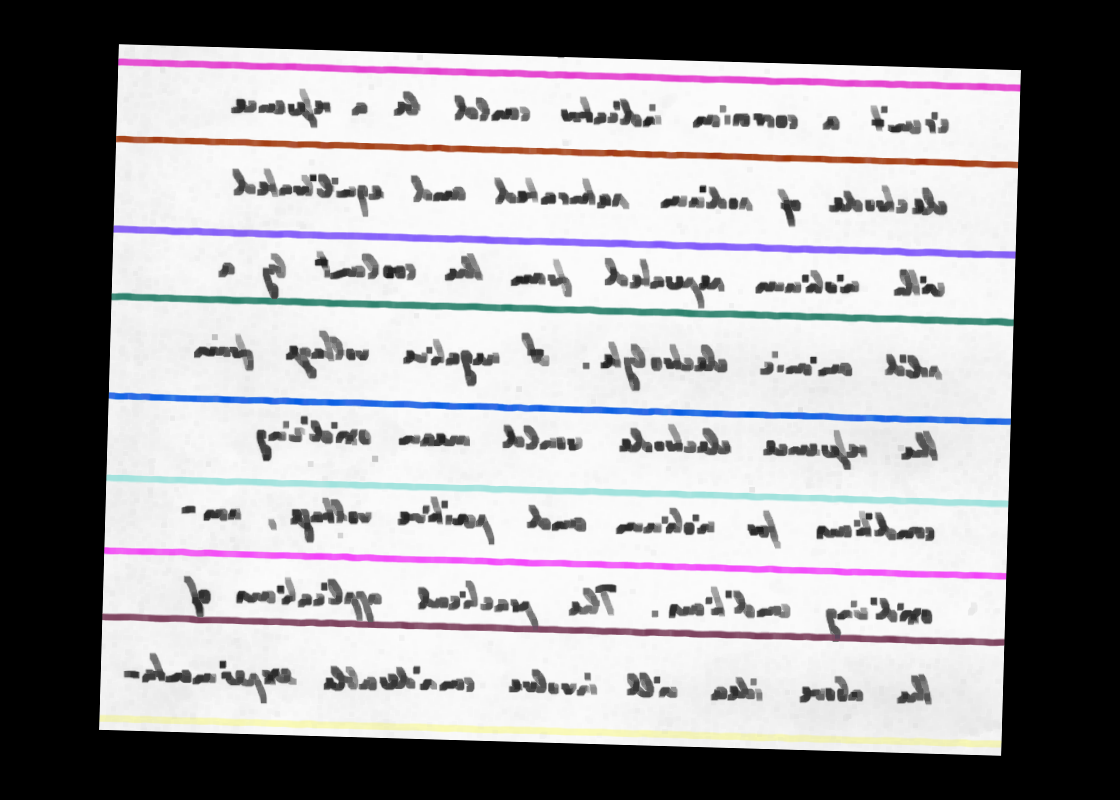 circuit a corrosion indicator could be a reference
electrode of sodium saturated and equilibrated
with niobium separated from the coolant by a
solid anionic electrolyte. A negative voltage from
the reference electrode would mean oxidizing
conditions for niobium and positive voltage, non-
oxidizing conditions. The practical applications of
the above idea will involve considerable experimenta-